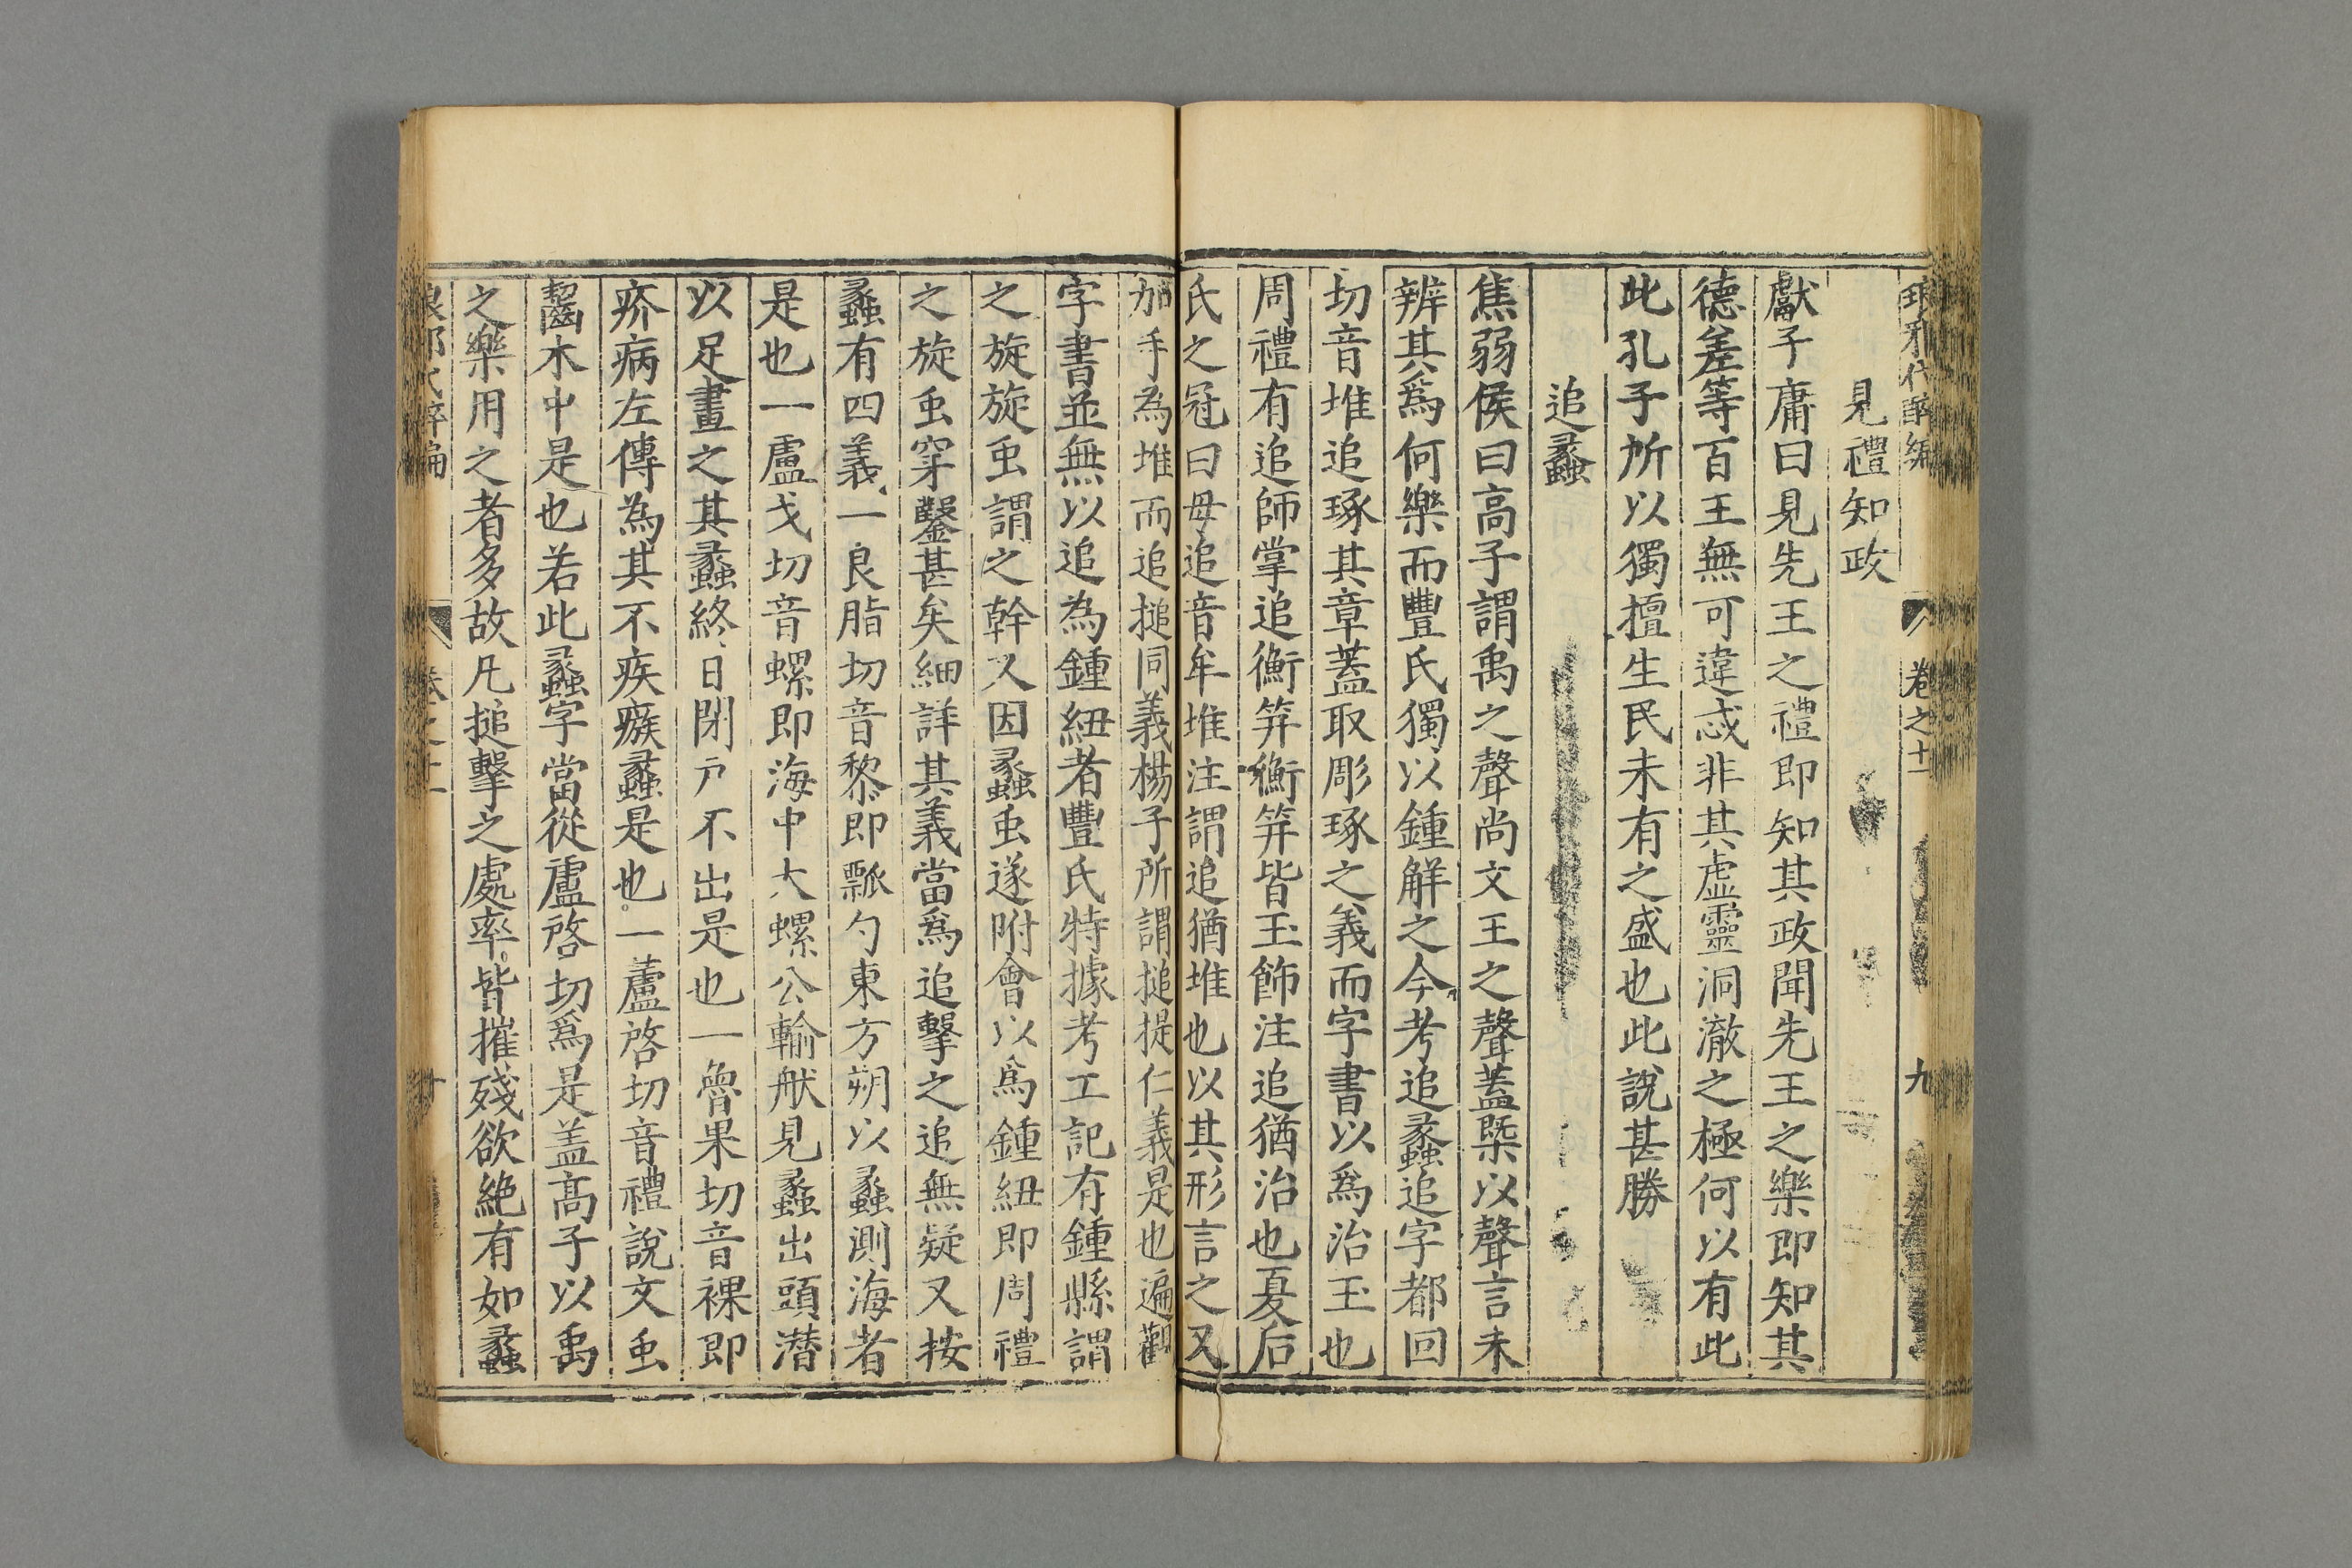 琅邪代醉編 卷之十一 九
見禮知政
獻子庸曰見先王之禮即知其政聞先王之樂即知其
德差等百王無可違忒非其虛靈洞澈之極何以有此
此孔子所以獨擅生民未有之盛也此說甚勝
追蠡
焦弱侯曰高子謂禹之聲尚文王之聲蓋槩以聲言未
辨其爲何樂而豐氏獨以鍾解之今考追蠡追字都回
切音堆追琢其章蓋取彫琢之義而字書以爲治玉也
周禮有追師掌追衡笄衡笄皆玉飾注追猶治也夏后
氏之冠曰毋追音牟堆注謂追猶堆也以其形言之又
加手為堆而追搥同義楊子所謂搥提仁義是也遍觀
字書並無以追為鍾紐者豐氏特據考工記有鍾縣謂
之旋旋虫謂之幹又因蠡虫遂附會以爲鍾紐即周禮
之旋虫穿鑿甚矣細詳其義當爲追擊之追無疑又按
蠡有四義一良脂切音黎即瓢勺東方朔以蠡測海者
是也一盧戈切音螺即海中大螺公輸般見蠡出頭潜
以足畫之其蠡終日閉戶不出是也一魯果切音裸即
疥病左傳為其不疾瘯蠡是也一蘆啓切音禮說文虫
齧木中是也若此蠡字當從盧啓切爲是盖高子以禹
之樂用之者多故凡搥擊之處率皆摧殘欲絶有如蠡